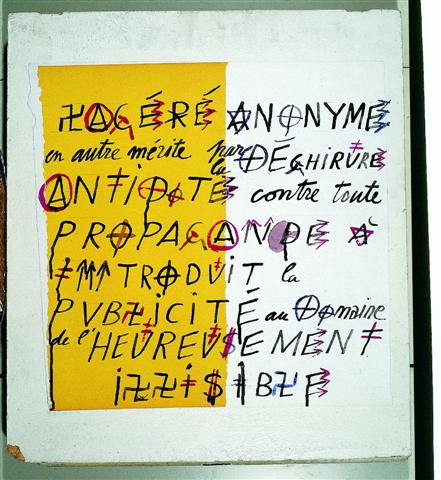 LACÉRÉ ANONYME
en autre mérite par la DÉCHIRURE
ANTIDOTE contre toute
PROPAGANDE À
INTRODUIT la
PUBLICITÉ au Domaine
de l'HEUREUSEMENT
ILLISIBLE